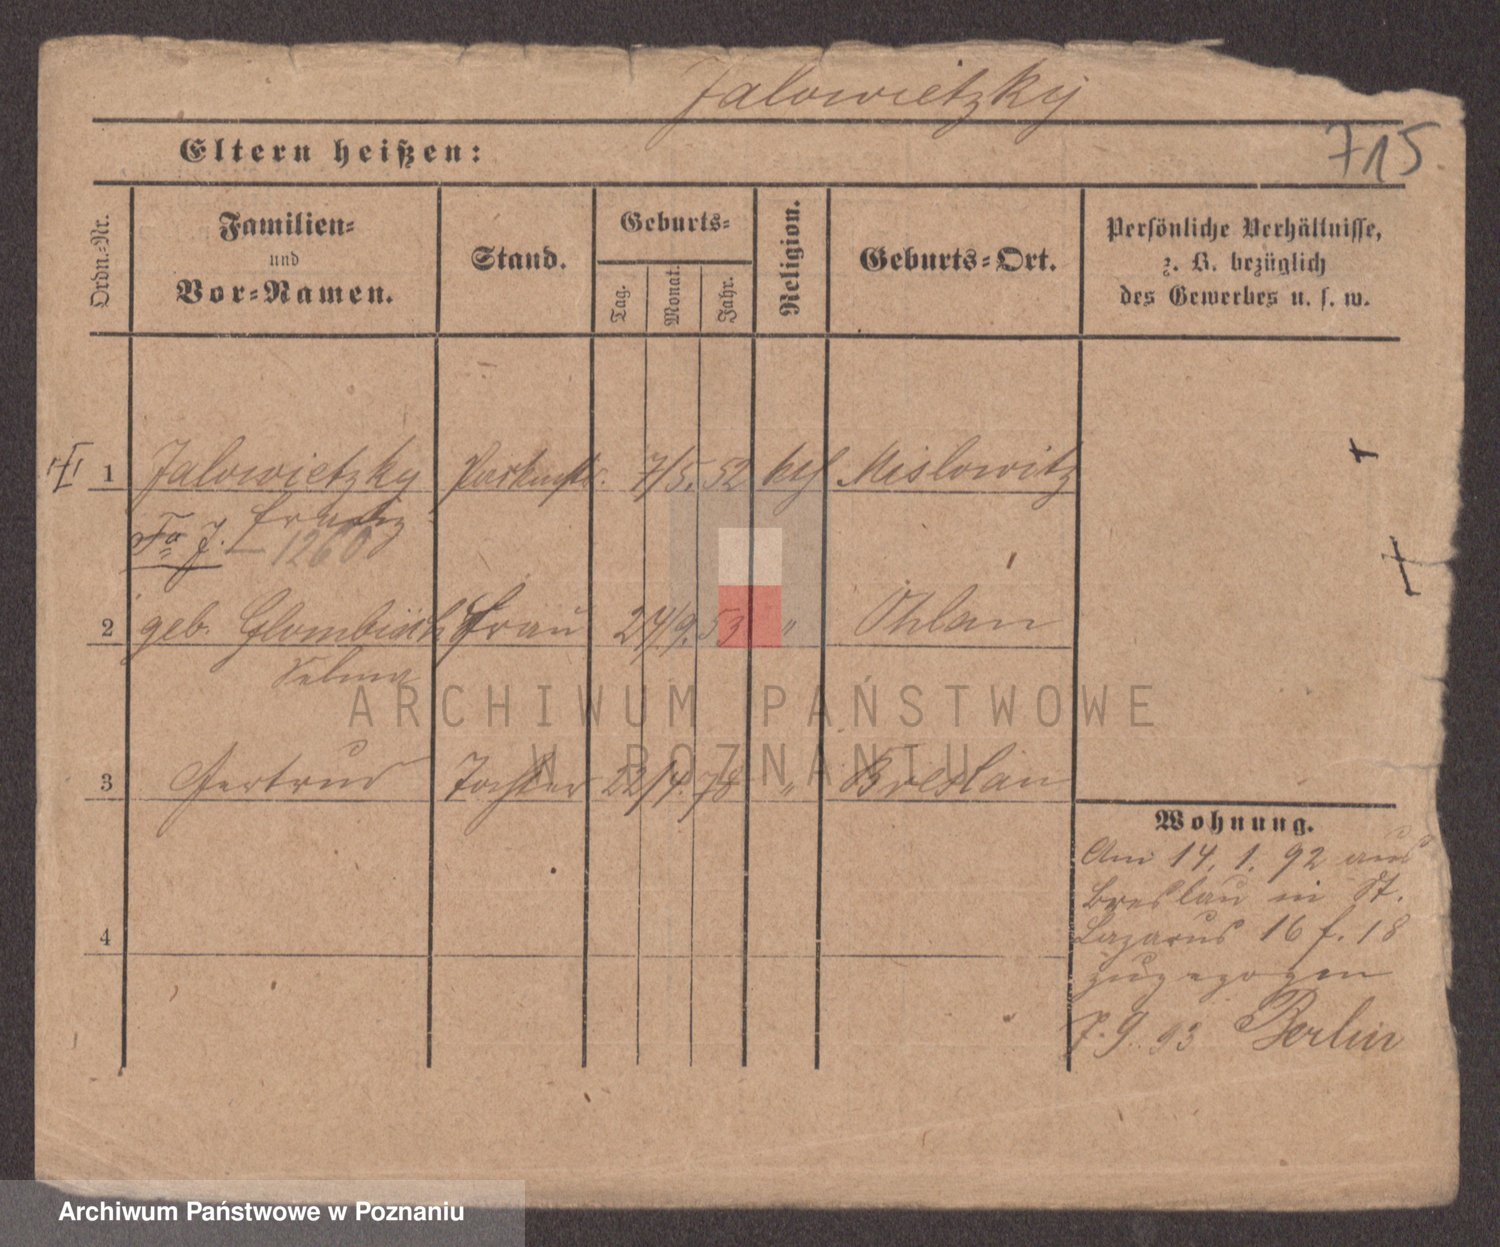 Jalowietzky
715
Eltern heißen:
Ordn.-Nr.
Familien-
und
Vor-Namen.
Stand.
Geburts-
Tag.
Monat.
Jahr.
Religion.
Geburts-Ort.
Persönliche Verhältnisse,
z. B. bezüglich
des Gewerbes u. s. w.
1 Jalowietzky 7/5. 52 kth Mislowitz
Franz
Fa J. — 1260
2 geb. Frau 24/9. 53 " Ohlau
Selma
ARCHIWUM PAŃSTWOWE
W POZNANIU
3 Gertrud Tochter 22/4. 78 " Breslau
4
Wohnung.
Am 14. 1. 92 aus
Breslau in St.
Lazarus 16 f. 18
zugezogen
7. 9. 93 Berlin
Archiwum Państwowe w Poznaniu